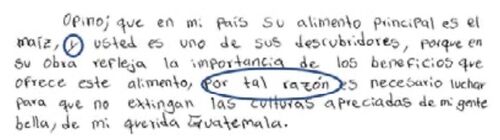 Opino; que en mi país su alimento principal es el
maíz, y usted es uno de sus descubridores, porque en
su obra refleja la importancia de los beneficios que
ofrece este alimento, por tal razón es necesario luchar
para que no extingan las culturas apreciadas de mi gente
bella, de mi querida Guatemala.